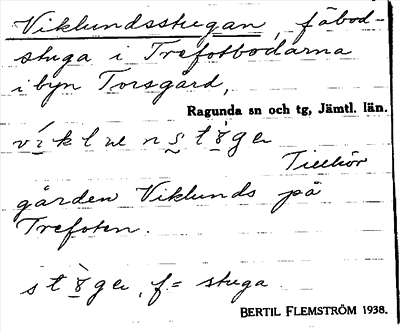 Viklundsstugan, fäbod-
stuga i Trefotbodarna
i byn Torsgård,
Ragunda sn och tg, Jämtl. län.
Tillhör
gården Viklunds på
Trefoten.
f = stuga
BERTIL FLEMSTRÖM 1938.